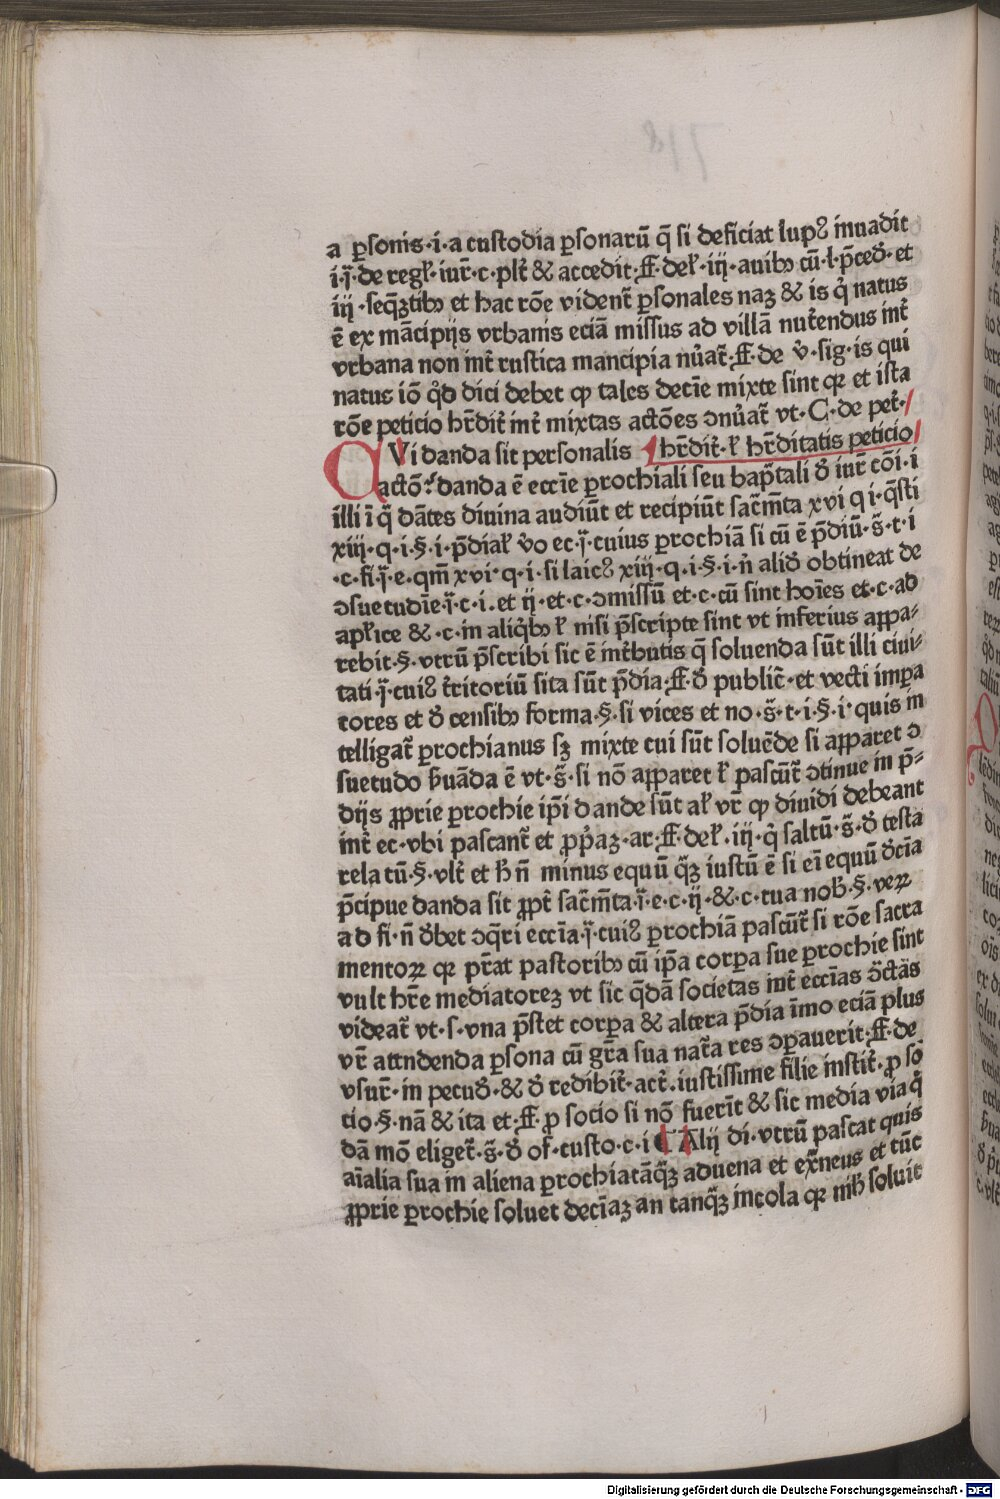 a ꝑsonis·i·a custodia ꝑsonarū q̄ si deficiat lupꝰ inuadit
i·q̄·de regl̕·iur̄·c·plt̕ & accedit·ff·del̕·iij·auibꝫ cū·l·p̄ced̕·et
iij·seq̄ꝫtibꝫ et hac rōe vident̄ ꝑsonales naꝫ & is q̇ natus
ē ex mācipijs vrbanis eciā missus ad villā nut̕endus int̕
vrbana non int̕ rustica mancipia nūat̄·ff·de v̕·sig·is qui
natus iō q̇d dici debet ꝙ tales decīe mixte sint qꝛ et ista
rōe peticio hr̄dit̕ int̕ mixtas actōes ɔnūat̄ vt·C·de pet̕·
CVi danda sit personalis hr̄dit̕·l̕ hr̄ditatis peticio
actō·danda ē eccīe ꝑrochiali seu bap̄tali d̕ iur̄ cōi·i
illi ī q̄ dātes diuina audiūt et recipiūt sac̄m̄ta xvi q i·q̄sti
xiij·q·i·§·i·p̄dial̕ v̕o ec·q̄·cuius ꝑrochiā si cū ē p̄diū·s̄·t·i
·c·fi·q̄·e·qm̄ xvi·q·i·si laicꝰ xiij·q·i·§·i·n̄ alid̕ obtineat de
ɔsuetudīe·q̄·c·i·et ij·et·c·ɔmissū et·c·cū sint hoīes et·c·ad
apl̕ice &·c·in aliq̇bꝫ l̕ nisi p̄scripte sint vt inferius aꝑpa-
rebit·§·vtrū p̄scribi sic ē int̕butis q̄ soluenda sūt illi ciui-
tati·q̄·cuiꝰ t̕ritoriū sita sūt p̄dia·ff·d̕ public̄·et vecti imꝑa
tores et d̕ censibꝫ forma·§·si vices et no·s̄·t·i·§·i·quis in
telligat̄ ꝑrochianus sꝫ mixte cui sūt soluēde si apparet ɔ
suetudo ƀuāda ē vt·s̄·si nō apparet l̕ pascūt̄ ɔtinue in p̄-
dijs ꝓprie ꝑrochie ip̄i dande sūt al̕ vr̄ ꝙ diuidi debeant
int̕ ec·vbi pascant̄ et ꝓp̄aꝫ·ar·ff·del̕·iij·q̇ saltū·s̄·d̕ testa
rela tū·§·vlt̕ et h̕ n̄ minus equū q̄ꝫ iustū ē si eī equū d̕cīa
p̄cipue danda sit ꝓpt̕ sac̄m̄ta·q̄·e·c·ij·&·c·tua nob̕·§·veꝝ
ad fi·n̄ d̕bet ɔq̄ri eccīa·q̄·cuiꝰ ꝑrochiā pascūt̄ si rōe sacra
mentoꝝ qꝛ pr̄at pastoribꝫ cū ip̄a corꝑa sue ꝑrochie sint
vult hr̄e mediatoreꝫ vt sic q̄dā societas int̕ eccīas d̄ctās
videat̄ vt·s·vna p̄stet corꝑa & altera p̄dia īmo eciā plus
vr̄ attndenda ꝑsona cū gr̄a sua nat̄a res ɔꝑauerit·ff·de
vsur̄·in pecud̕·& d̕ redibit̕·act̕·iustissime filie instit̕·ꝓ so
cio·§·nā & ita et·ff·ꝓ socio si nō fuerīt & sic media via q̇
dā mō eliget̄·s̄·d̕ of·custo·c·i Alij di·vtrū pascat quis
aīalia sua in aliena ꝑrochia tāq̄ꝫ aduena et ex̄neus et tūc
ꝓprie ꝑrochie soluet decīaꝫ an tanq̄ꝫ incola qꝛ nih̕ soluit
Digitalisierung gefördert durch die Deutsche Forschungsgemeinschaft - DFG